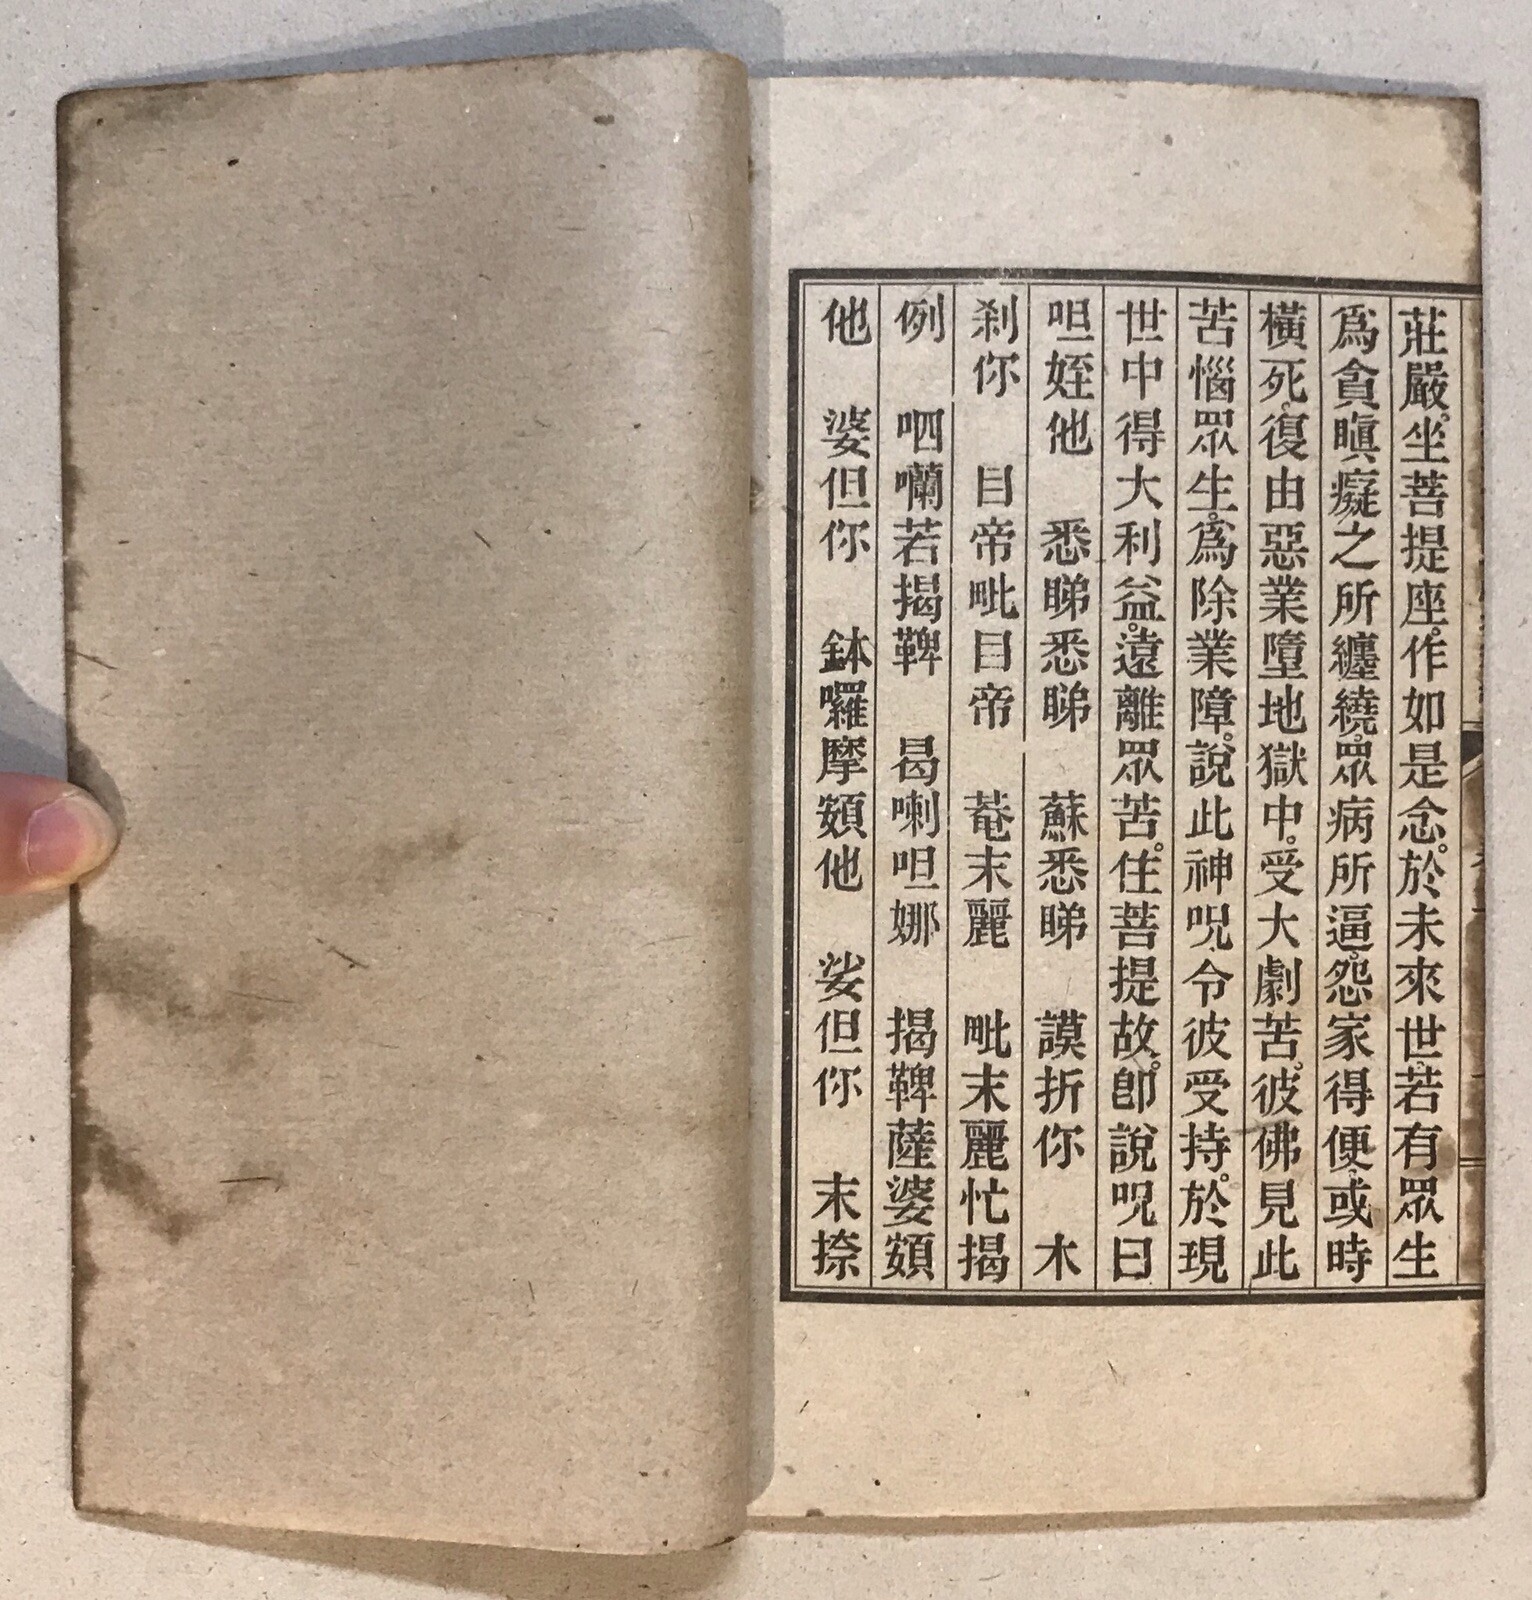 莊嚴。坐菩提座。作如是念。於未來世。若有眾生
爲貪瞋癡之所纏繞。眾病所逼。怨家得便。或時
橫死。復由惡業墮地獄中。受大劇苦。彼佛見此
苦惱眾生。爲除業障。說此神呪。令彼受持。於現
世中得大利益。遠離眾苦。住菩提故。卽說呪曰
呾姪他　悉睇悉睇　蘇悉睇　謨折你　木
刹你　目帝毗目帝　菴末麗　毗末麗忙揭
例　呬囒若揭鞞　曷喇呾娜　揭鞞薩婆頞
他　婆但你　鉢囉摩頞他　娑但你　末捺